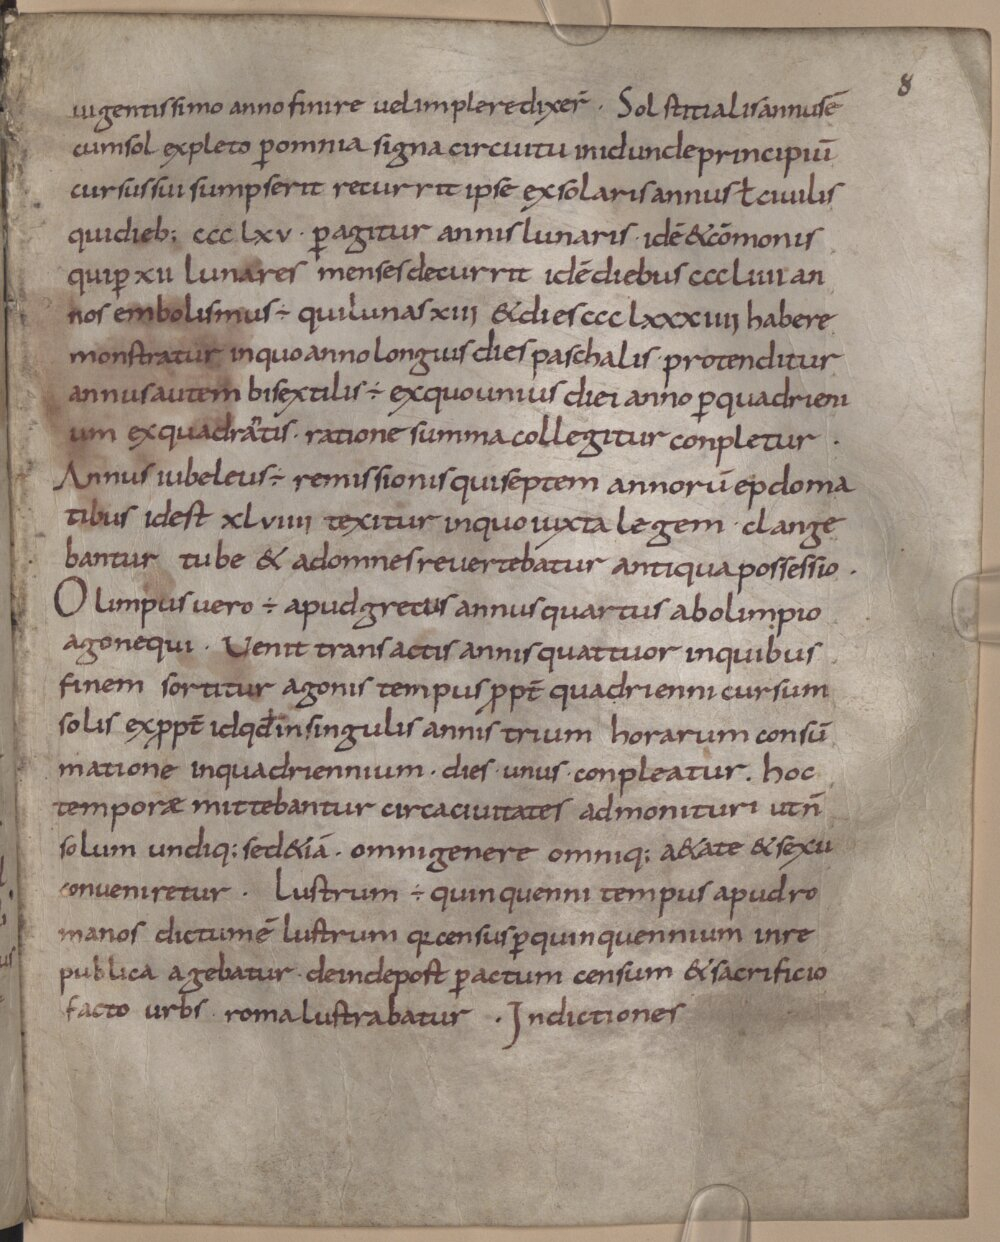 8
uigentissimo anno finire uel implere dixeř · Solstitialis annus ē
cum sol expleto ꝑ omnia signa circuitu in id unde principiū
cursus sui sumpserit recurrit ipse ex solaris annus ł ciuilis
qui dieb; ccc lxv · ꝑagitur annis lunaris · idē & cōmonis
qui ꝑ xii lunares menses decurrit idē diebus ccc liiii an
nos embolismus ÷ qui lunas xiii & dies ccc lxxxiiii habere
monstratur in quo anno longius dies paschalis · protenditur
annus autem bisextilis ÷ ex quo unius diei anno ꝑ quadrieni
um ex quadratis · ratione summa collegitur conpletur ·
Annus iubeleus ÷ remissionis qui septem annorū epdoma
tibus id est xlviiii texitur in quo iuxta legem · clange
bantur tube & ad omnes reuertebatur antiqua possessio ·
Olimpus uero ÷ apud gretus annus quartus ab olimpio
agone qui · Uenit transactis annis quattuor in quibus
finem sortitur agonis tempus ꝓpṫ quadrienni cursum
solis ex ꝓpṫ id qđ in singulis annis trium horarum consū
matione in quadriennium · dies · unus · conpleatur . hoc
temporæ mittebantur circa ciuitates admonituri ut ñ
solum undiq; sed &iā · omni genere omniq; a&ate & sexu
conueniretur · Lustrum ÷ quinquenni tempus apud ro
manos dictum ē lustrum ꝙ census ꝑ quinquennium in re
publica agebatur · deinde post ꝑactum censum & sacrificio
facto urbs · roma lustrabatur · Indictiones